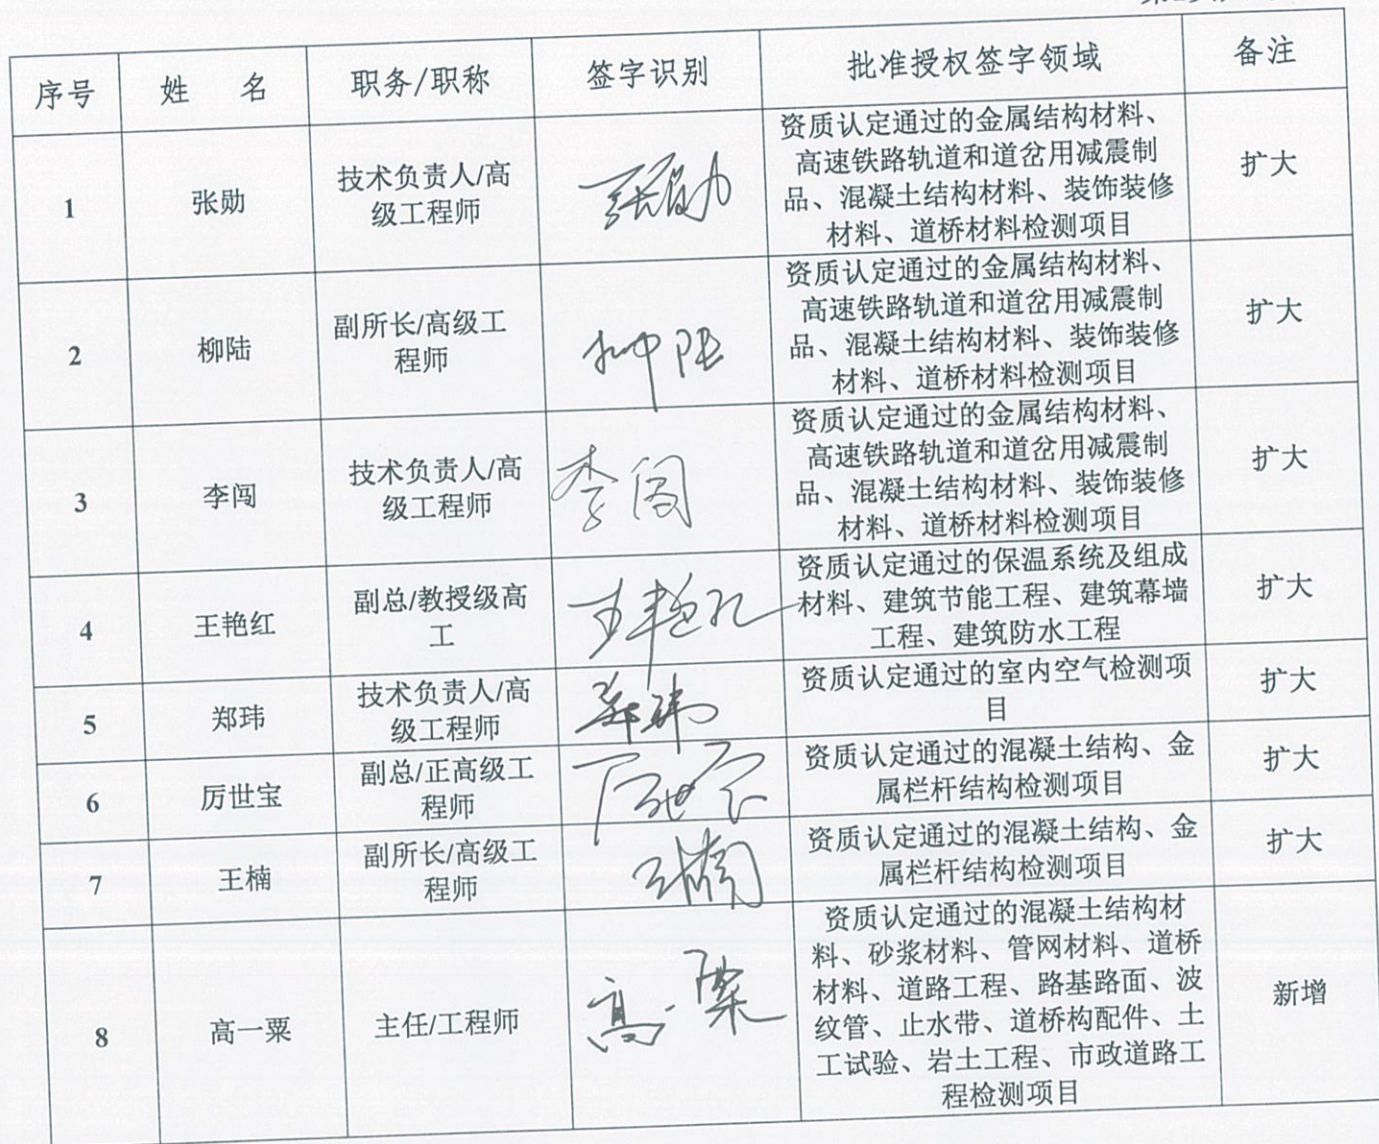 序号 姓 名 职务/职称 签字识别 批准授权签字领域 备注
1 张勋 技术负责人/高
级工程师 张勋 资质认定通过的金属结构材料、
高速铁路轨道和道岔用减震制
品、混凝土结构材料、装饰装修
材料、道桥材料检测项目 扩大
2 柳陆 副所长/高级工
程师 柳陆 资质认定通过的金属结构材料、
高速铁路轨道和道岔用减震制
品、混凝土结构材料、装饰装修
材料、道桥材料检测项目 扩大
3 李闯 技术负责人/高
级工程师 李闯 资质认定通过的金属结构材料、
高速铁路轨道和道岔用减震制
品、混凝土结构材料、装饰装修
材料、道桥材料检测项目 扩大
4 王艳红 副总/教授级高
工 王艳红 资质认定通过的保温系统及组成
材料、建筑节能工程、建筑幕墙
工程、建筑防水工程 扩大
5 郑玮 技术负责人/高
级工程师 郑玮 资质认定通过的室内空气检测项
目 扩大
6 厉世宝 副总/正高级工
程师 厉世宝 资质认定通过的混凝土结构、金
属栏杆结构检测项目 扩大
7 王楠 副所长/高级工
程师 王楠 资质认定通过的混凝土结构、金
属栏杆结构检测项目 扩大
8 高一粟 主任/工程师 高一粟 资质认定通过的混凝土结构材
料、砂浆材料、管网材料、道桥
材料、道路工程、路基路面、波
纹管、止水带、道桥构配件、土
工试验、岩土工程、市政道路工
程检测项目 新增